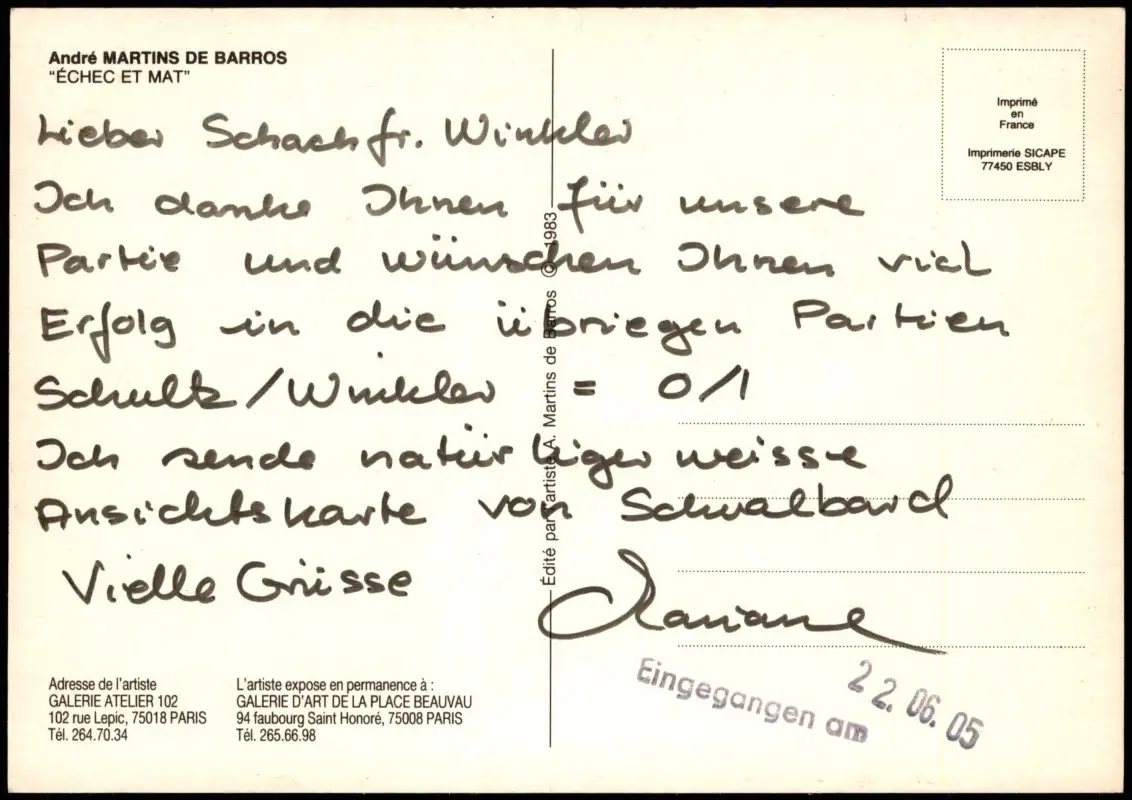 André MARTINS DE BARROS
"ÉCHEC ET MAT"
Imprimé
en
France
Imprimerie SICAPE
77450 ESBLY
Lieber Schachfr. Winkler
Ich danke Ihnen für unsere
Partie und wünschen Ihnen viel
Erfolg in die übriegen Partien
Schultz/Winkler = 0/1
Ich sende natürliger weisse
Ansichtskarte von Schwalbard
Vielle Grüsse
Mariane
Édité par l'artiste A. Martins de Barros © 1983
Adresse de l'artiste
GALERIE ATELIER 102
102 rue Lepic, 75018 PARIS
Tél. 264.70.34
L'artiste expose en permanence à :
GALERIE D'ART DE LA PLACE BEAUVAU
94 faubourg Saint Honoré, 75008 PARIS
Tél. 265.66.98
Eingegangen am 22.06.05